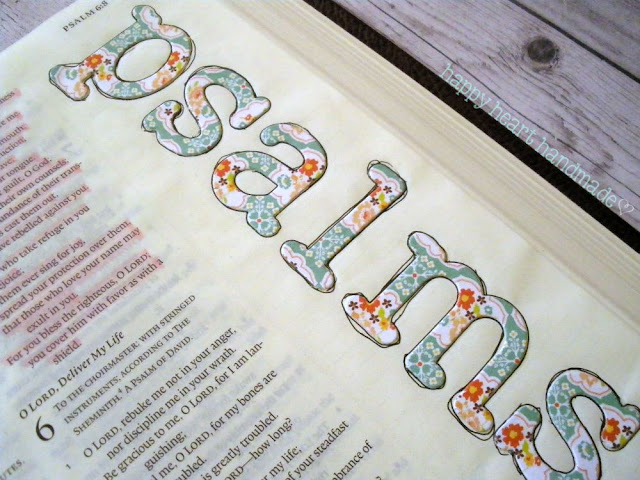 PSALM 6:8
psalms
happy heart handmade
guilt, O God;
own counsels;
andance of their tran-
cast them out,
ve rebelled against you.
who take refuge in you
them ever sing for joy,
spread your protection over them,
that those who love your name may
exult in you.
For you bless the righteous, O LORD;
you cover him with favor as with a
shield.
O LORD, Deliver My Life
6 TO THE CHOIRMASTER: WITH STRINGED
INSTRUMENTS; ACCORDING TO THE
SHEMINITH. A PSALM OF DAVID.
1 O LORD, rebuke me not in your anger,
nor discipline me in your wrath.
Be gracious to me, O LORD, for I am lan-
guishing;
me, O LORD, for my bones are
troubled.
is greatly troubled.
LORD—how long?
my life;
of your steadfast